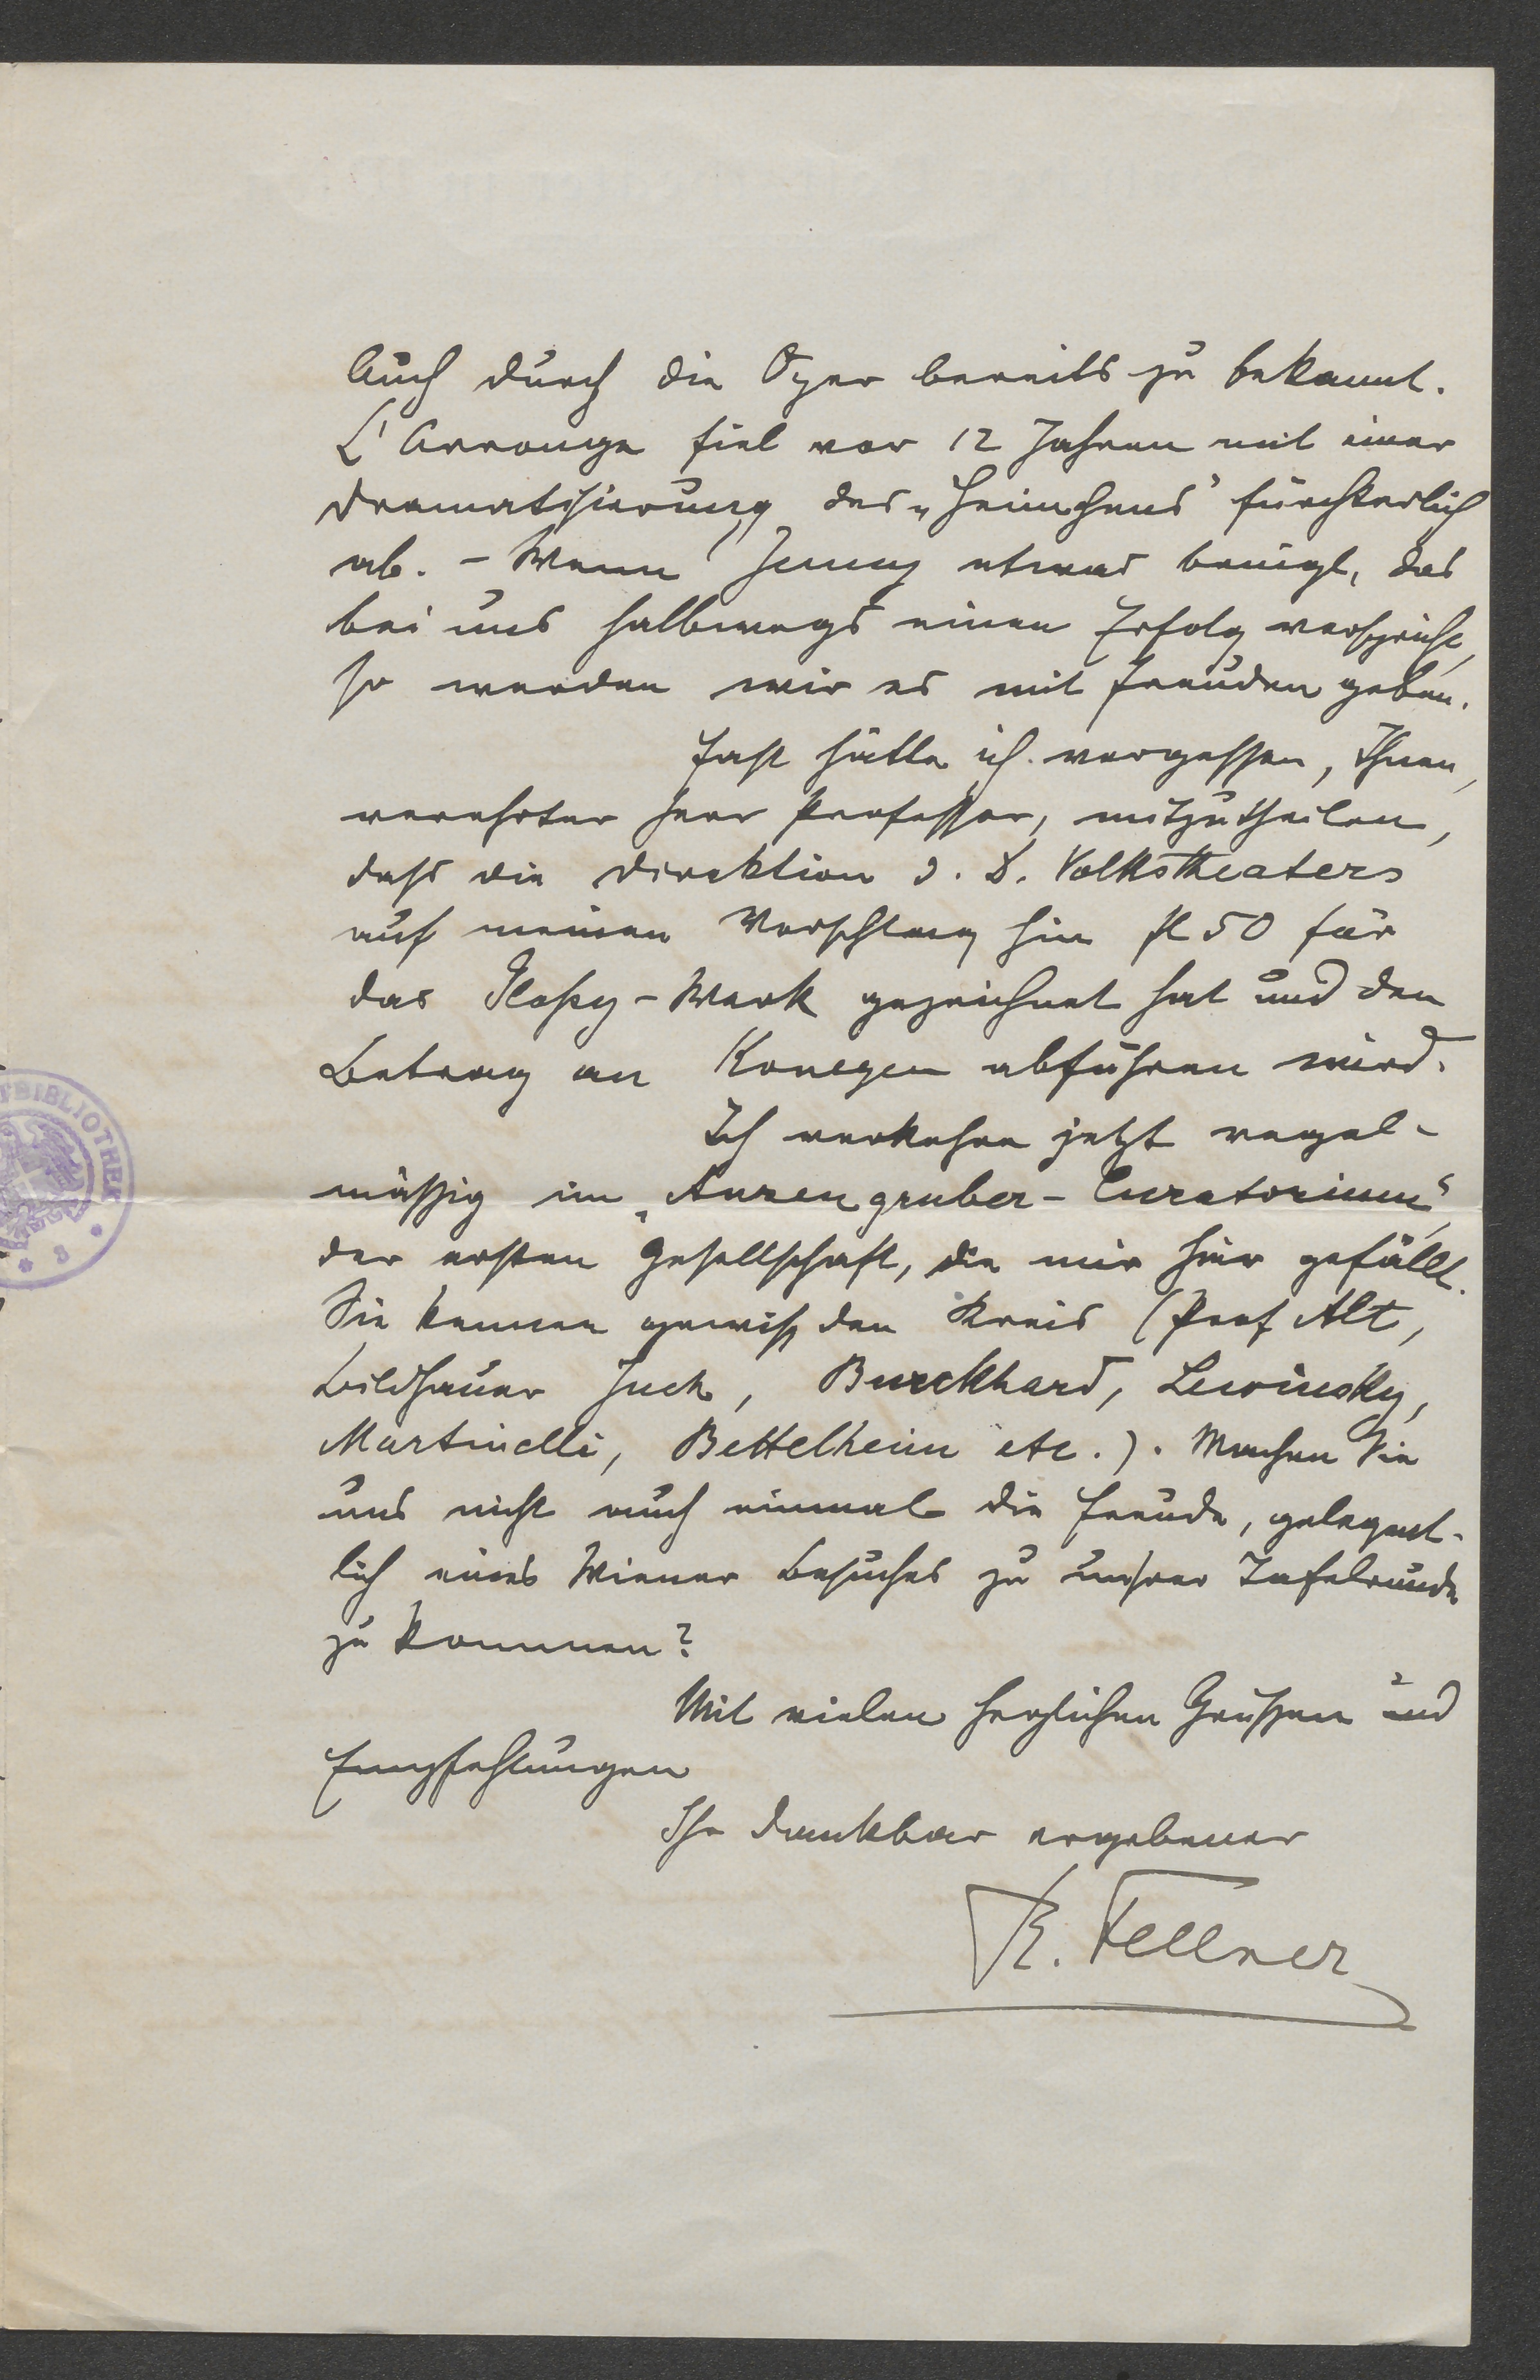 Auch durch die Oper bereits zu bekannt.
L'Arronge fiel vor 12 Jahren mit einer
Dramatisierung des „Heimchens" fürchterlich
ab. – Wenn Jenny etwas bringt, das
bei uns halbwegs einen Erfolg verspricht,
so werden wir es mit Freuden geben.
Fast hätte ich vergessen, Ihnen,
verehrter Herr Professor, mitzutheilen,
daß die Direktion d. D. Volkstheaters
auf meinen Vorschlag hin fl 50 für
das Glossy-Werk gezeichnet hat und den
Betrag an Konegen abführen wird.
Ich verkehre jetzt regel-
mäßig im „Anzengruber-Curatorium",
der ersten Gesellschaft, die mir hier gefällt.
Sie kennen gewiß den Kreis (Prof Alt,
Bildhauer Juch, Burckhard, Lewinsky,
Martinelli, Bettelheim etc.). Machen Sie
uns nicht auch einmal die Freude, gelegent-
lich eines Wiener Besuches zu unsrer Tafelrunde
zu kommen?
Mit vielen herzlichen Grüßen und
Empfehlungen
Ihr dankbar ergebener
R. Fellner
TBIBLIOTHEK